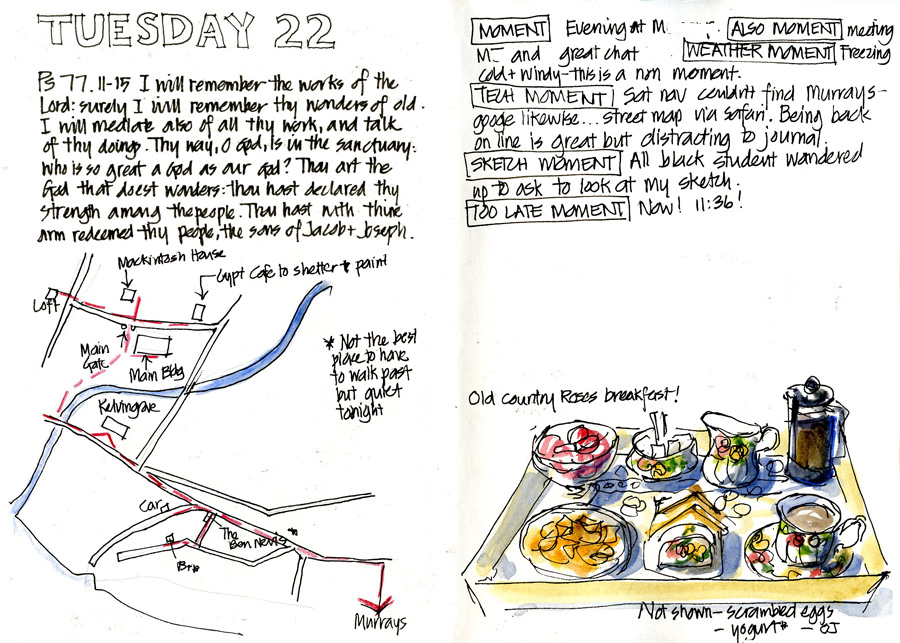 TUESDAY 22
Ps 77.11-15 I will remember the works of the
Lord: surely I will remember thy wonders of old.
I will mediate also of all thy work, and talk
of thy doings. Thy way, O God, is in the sanctuary:
who is so great a God as our God? Thou art the
God that doest wonders: thou hast declared thy
strength among the people. Thou hast with thine
arm redeemed thy people, the sons of Jacob + Joseph.
Mackintosh House
Gypt Cafe to shelter + paint
Loft
Main
Gate
Main Bldg
* Not the best
place to have
to walk past
but quiet
tonight
Kelvingrove
Car
The
Ben Nevis *
Murrays
MOMENT Evening at M ALSO MOMENT meeting
M and great chat WEATHER MOMENT Freezing
cold + windy - this is a non moment.
TECH MOMENT Sat nav couldn't find Murrays -
googe likewise... street map via safari. Being back
on line is great but distracting to journal.
SKETCH MOMENT All black student wandered
up to ask to look at my sketch.
TOO LATE MOMENT Now! 11:36!
Old Country Roses breakfast!
Not shown - scrambled eggs
- yogurt - OJ